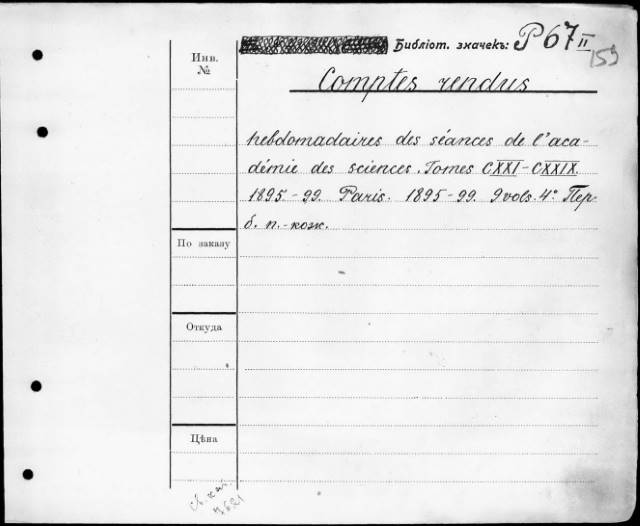 Библіот. значекъ: P67 II
159
Инв.
№
Comptes rendus
hebdomadaires des séances de l'aca-
démie des sciences. Tomes CXXI-CXXIX.
1895-99. Paris. 1895-99. 9 vols. 4º Пер.
б. п.-кож.
По заказу
Откуда
Цѣна